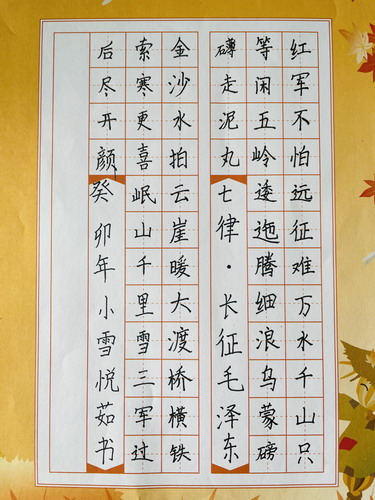 红军不怕远征难万水千山只
等闲五岭逶迤腾细浪乌蒙磅
礴走泥丸
七律·长征毛泽东
金沙水拍云崖暖大渡桥横铁
索寒更喜岷山千里雪三军过
后尽开颜
癸卯年小雪悦茹书